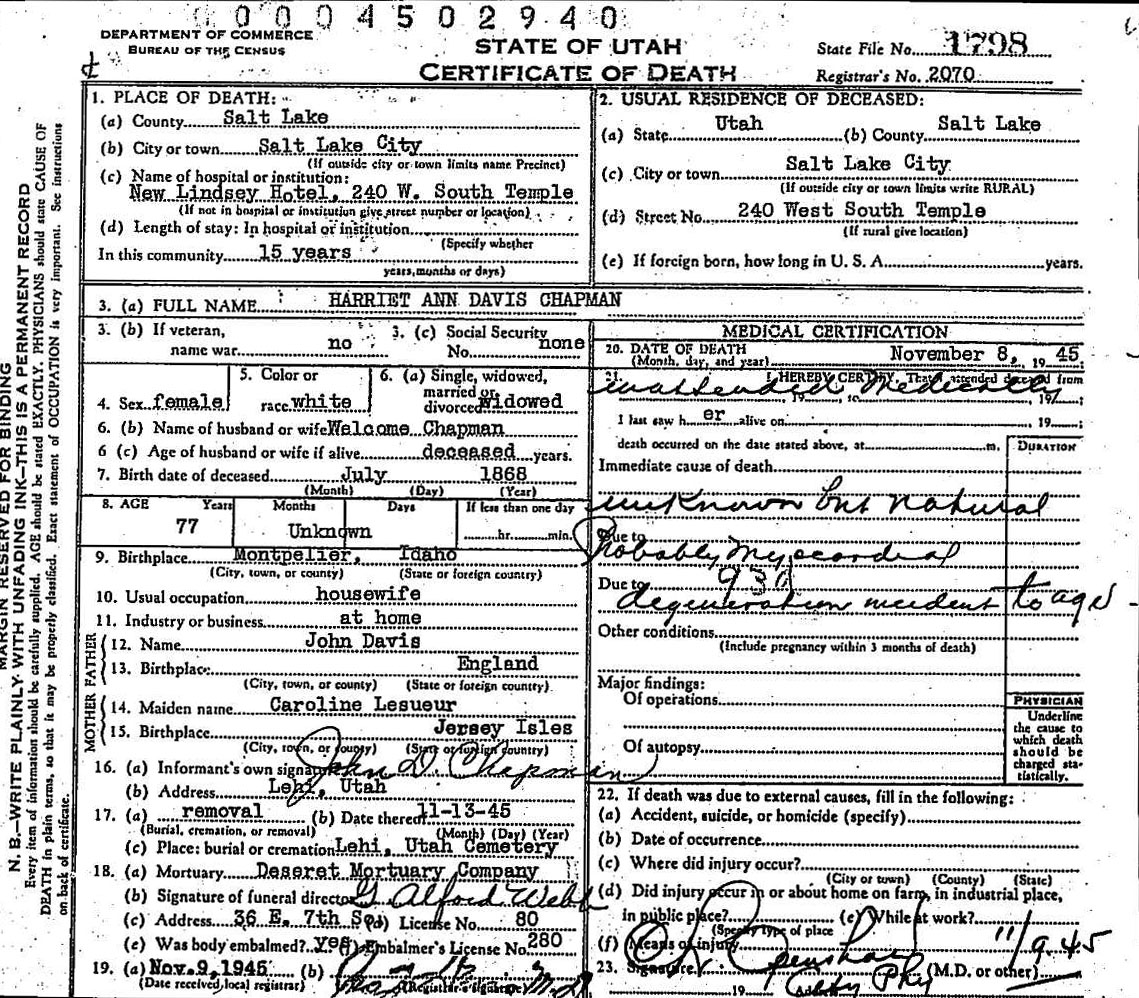 0004502940
DEPARTMENT OF COMMERCE
BUREAU OF THE CENSUS
STATE OF UTAH
CERTIFICATE OF DEATH
State File No. 1798
Registrar's No. 2070
MARGIN RESERVED FOR BINDING
N. B.—WRITE PLAINLY WITH UNFADING INK—THIS IS A PERMANENT RECORD
Every item of information should be carefully supplied. AGE should be stated EXACTLY. PHYSICIANS should state CAUSE OF
DEATH in plain terms, so that it may be properly classified. Exact statement of OCCUPATION is very important. See instructions
on back of certificate.
1. PLACE OF DEATH:
(a) County Salt Lake
(b) City or town Salt Lake City
(If outside city or town limits name Precinct)
(c) Name of hospital or institution:
New Lindsey Hotel, 240 W. South Temple
(If not in hospital or institution give street number or location)
(d) Length of stay: In hospital or institution
(Specify whether
In this community 15 years
years, months or days)
2. USUAL RESIDENCE OF DECEASED:
(a) State Utah (b) County Salt Lake
(c) City or town Salt Lake City
(If outside city or town limits write RURAL)
(d) Street No. 240 West South Temple
(If rural give location)
(e) If foreign born, how long in U. S. A. years.
3. (a) FULL NAME HARRIET ANN DAVIS CHAPMAN
3. (b) If veteran,
name war no
3. (c) Social Security
No. none
4. Sex female
5. Color or
race white
6. (a) Single, widowed,
married or
divorced widowed
6. (b) Name of husband or wife Welcome Chapman
6 (c) Age of husband or wife if alive deceased years.
7. Birth date of deceased July 1868
(Month) (Day) (Year)
8. AGE Years Months Days If less than one day
77 Unknown hr. min.
9. Birthplace Montpelier, Idaho
(City, town, or county) (State or foreign country)
10. Usual occupation housewife
11. Industry or business at home
FATHER
12. Name John Davis
13. Birthplace England
(City, town, or county) (State or foreign country)
MOTHER
14. Maiden name Caroline Lesueur
15. Birthplace Jersey Isles
(City, town, or county) (State or foreign country)
16. (a) Informant's own signature John D. Chapman
(b) Address Lehi, Utah
17. (a) removal (b) Date thereof 11-13-45
(Burial, cremation, or removal) (Month) (Day) (Year)
(c) Place: burial or cremation Lehi, Utah Cemetery
18. (a) Mortuary Deseret Mortuary Company
(b) Signature of funeral director G. Alford Webb
(c) Address 36 E. 7th So. (d) License No. 80
(e) Was body embalmed? Yes (f) Embalmer's License No. 280
19. (a) Nov. 9, 1945 (b) M.D.
(Date received, local registrar) (Registrar's signature)
MEDICAL CERTIFICATION
20. DATE OF DEATH November 8, 1945
(Month, day, and year)
21. I HEREBY CERTIFY, That I attended deceased from
unattended Medically
19 , to , 19 ;
I last saw h er alive on , 19 ;
death occurred on the date stated above, at m.
DURATION
Immediate cause of death
unknown but natural
Due to
Probably Myocardial
Due to 93
degeneration incident to age
Other conditions
(Include pregnancy within 3 months of death)
Major findings:
Of operations
Of autopsy
PHYSICIAN
Underline
the cause to
which death
should be
charged sta-
tistically.
22. If death was due to external causes, fill in the following:
(a) Accident, suicide, or homicide (specify)
(b) Date of occurrence
(c) Where did injury occur?
(City or town) (County) (State)
(d) Did injury occur in or about home on farm, in industrial place,
in public place? (e) While at work?
(Specify type of place
(f) Means of injury 11/9 45
23. Signature (M.D. or other)
19 Address City Phy